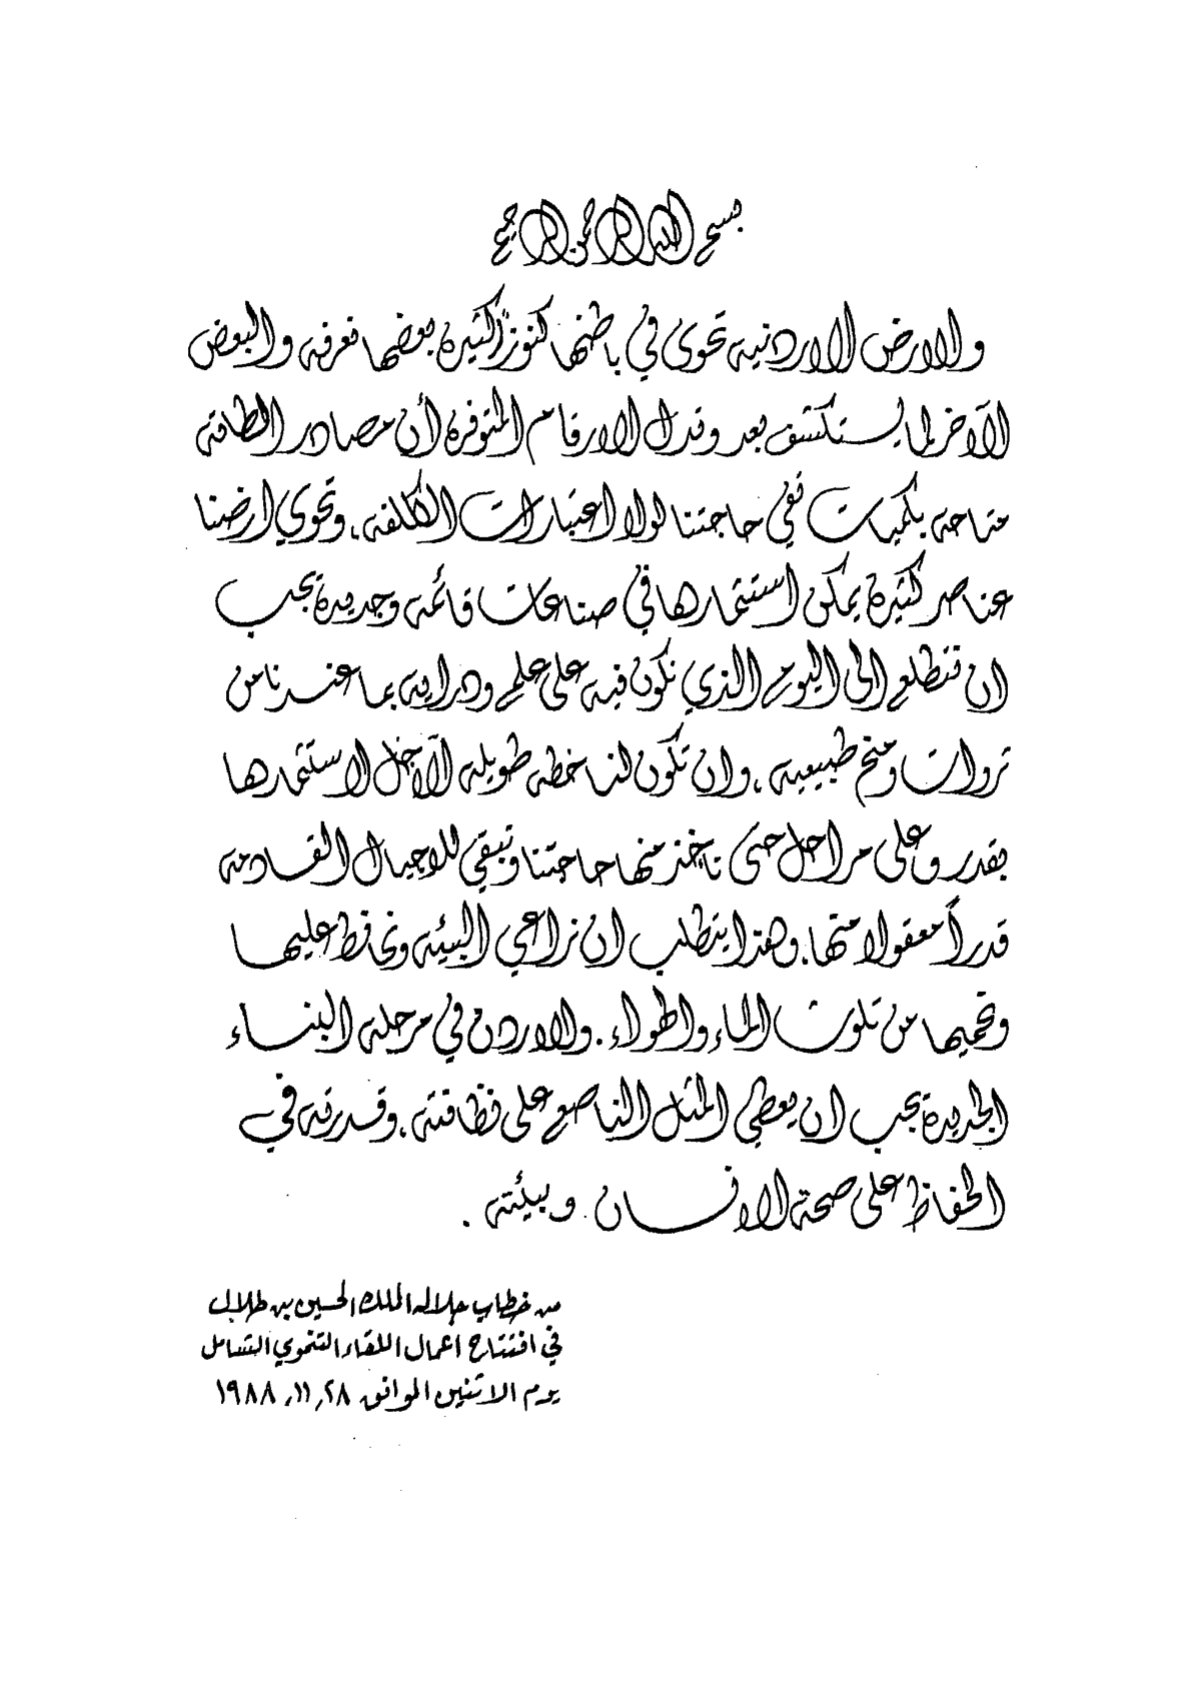 بسم الله الرحمن الرحيم
والارض الاردنية تحوى في باطنها كنوزاً كثيرة بعضها نعرفه والبعض
الآخر لما يستكشف بعد وتدل الارقام المتوفرة أن مصادر الطاقة
متاحه بكميات تفي حاجتنا لولا اعتبارات الكلفه، وتحوي ارضنا
عناصر كثيرة يمكن استثمارها في صناعات قائمة وجديدة يجب
ان نتطلع الى اليوم الذي نكون فيه على علم ودراية بما عندنا من
ثروات ومنح طبيعية، وان تكون لنا خطة طويلة الآجل لاستثمارها
بقدر وعلى مراحل حتى نأخذ منها حاجتنا ونبقي للاجيال القادمة
قدراً معقولا منها. وهذا يتطلب ان نراعي البيئة ونحافظ عليها
ونحميها من تلوث الماء والهواء. والاردن في مرحلة البناء
الجديدة يجب ان يعطي المثل الناصع على نظافته، وقدرته في
الحفاظ على صحة الانسان وبيئته.
من خطاب جلالة الملك الحسين بن طلال
في افتتاح اعمال اللقاء التنموي الشامل
يوم الاثنين الموافق ٢٨/١١/١٩٨٨